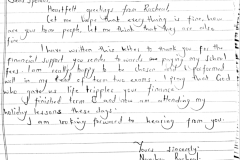 Heartfelt greetings from Racheal.
Let me hope that everything is fine. how
are you born people, let me think that they are also
fine.
I have written this letter to thank you for the
financial support you render to words me paying my school
fees. I am really happy to be chosen and performed
well in my end of term two exams. I pray that God
who gave us life tripples your finance.
I finished term 2 and am attending my
holiday lessons these days.
I am looking forward to hearing from you.
Yours sincerely
Racheal